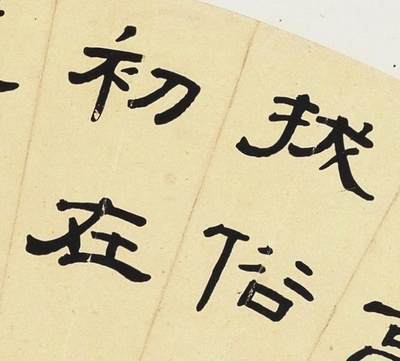 拔俗
初在